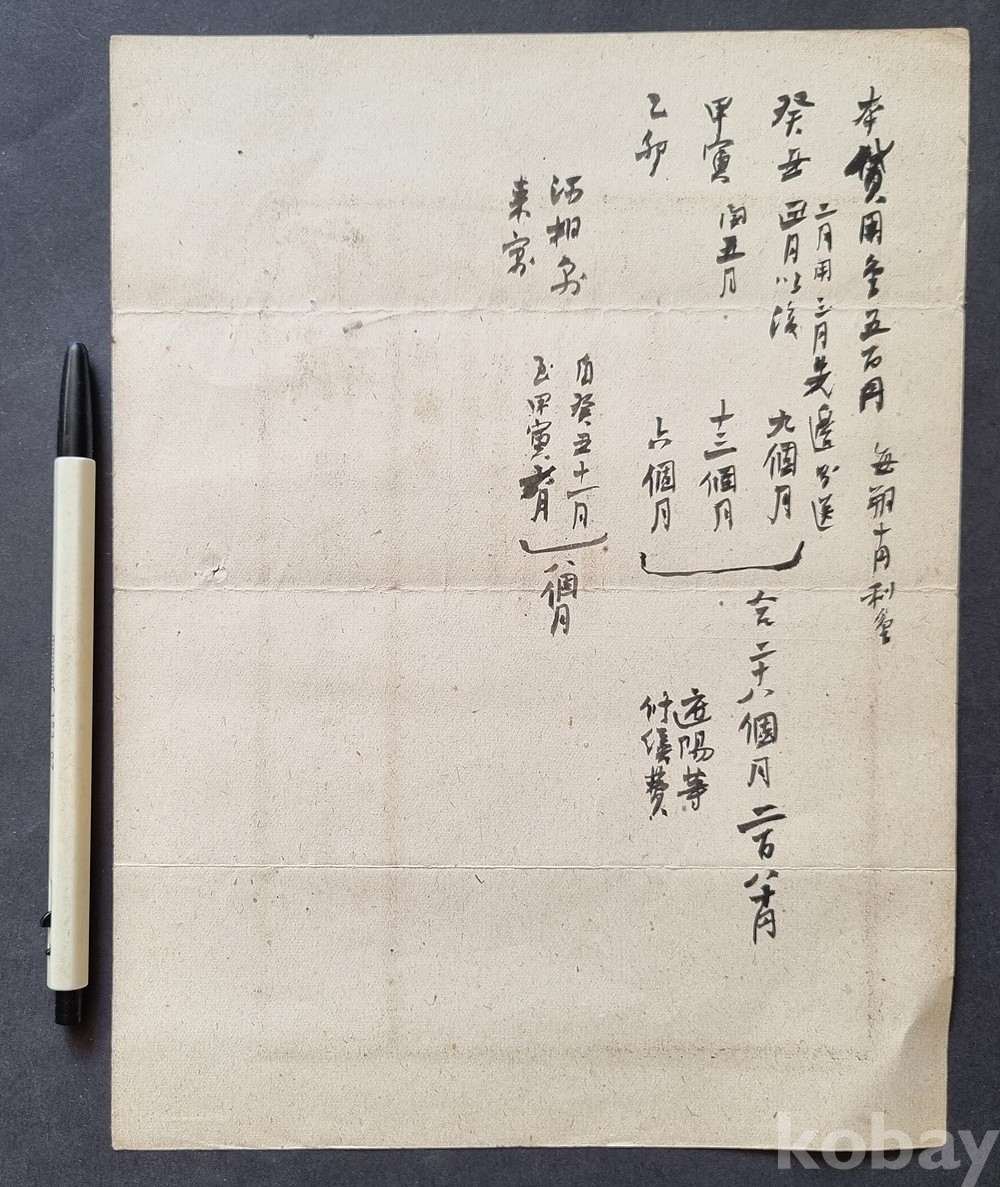 本貸用金五百円 每朔十円利金
二月用三月先邊分送
癸丑 四月以後 九個月
甲寅 閏五月 十三個月
乙卯 六個月
合二十八個月 二百八十円
遼陽等
付送費
自癸丑十一月
至甲寅 六月
八個月
kobay